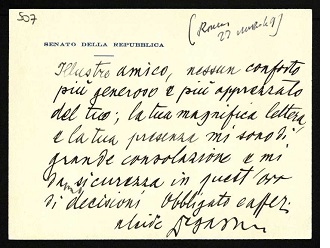 507
(Roma
27 
SENATO DELLA REPUBBLICA
Illustre amico, nessun conforto
più generoso e più apprezzato
del tuo; la tua magnifica lettera
e la tua presenza mi sono di
grande consolazione e mi
danno sicurezza in quest'ora
di decisioni Obbligato
alcide Degasperi